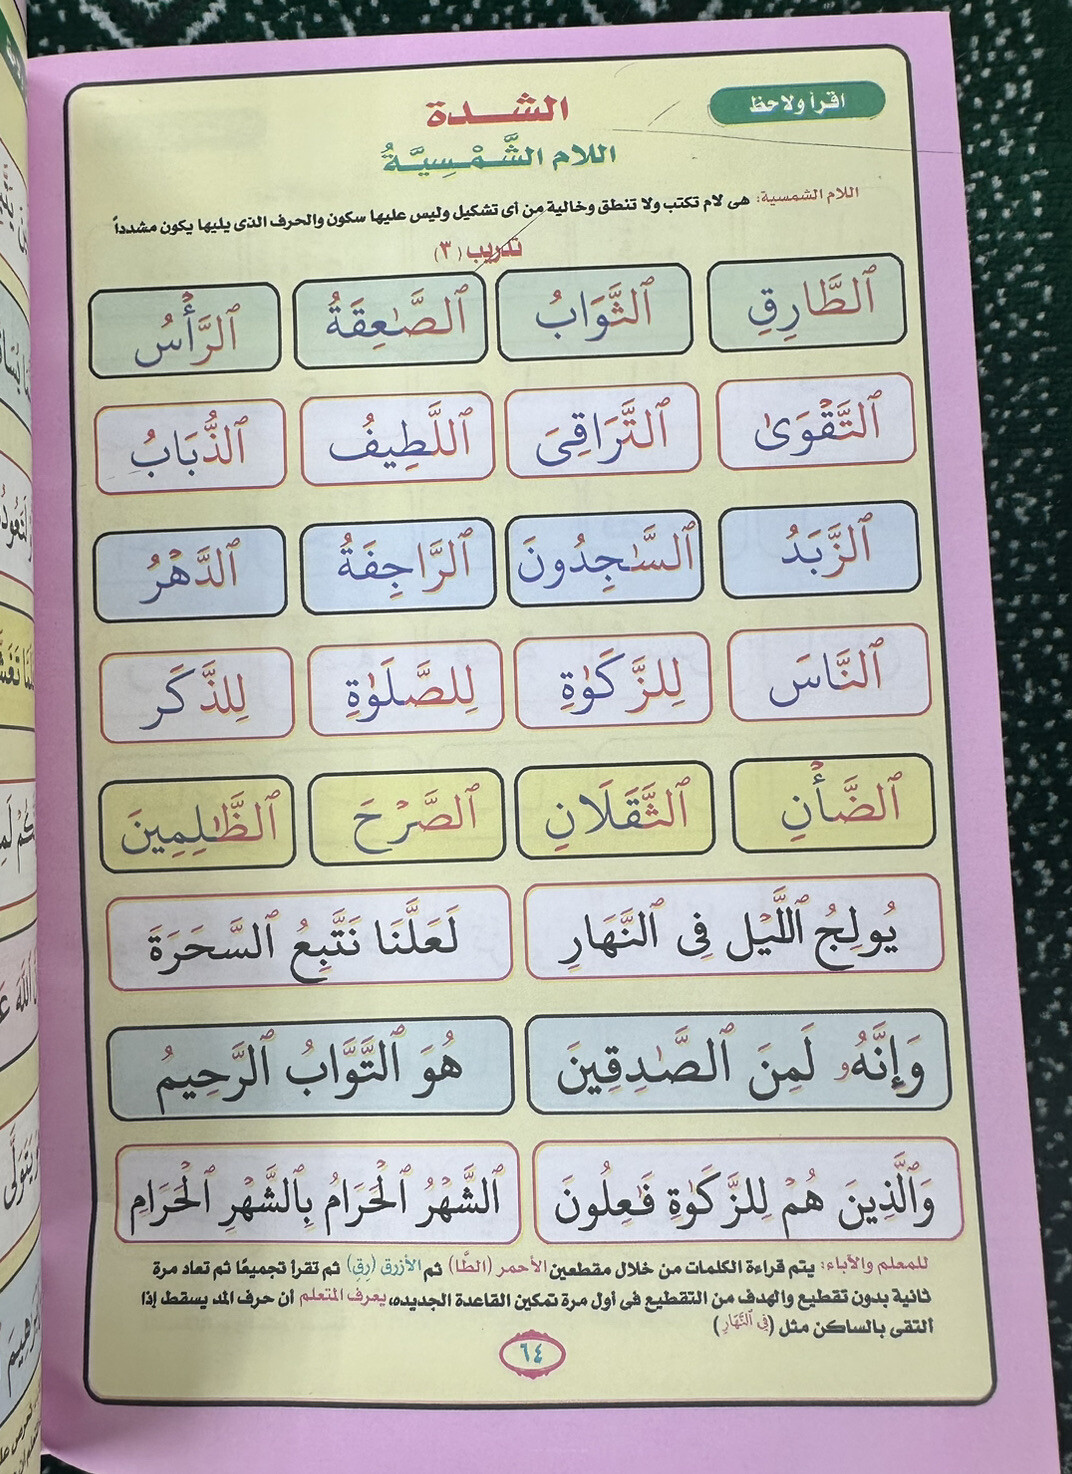 اقرأ ولاحظ
الشدة
اللام الشَّمْسِيَّةُ
اللام الشمسية: هى لام تكتب ولا تنطق وخالية من أى تشكيل وليس عليها سكون والحرف الذى يليها يكون مشدداً
تدريب (٣)
ٱلطَّارِقِ ٱلثَّوَابُ ٱلصَّٰعِقَةُ ٱلرَّأْسُ
ٱلتَّقْوَىٰ ٱلتَّرَاقِىَ ٱللَّطِيفُ ٱلذُّبَابُ
ٱلزَّبَدُ ٱلسَّٰجِدُونَ ٱلرَّاجِفَةُ ٱلدَّهْرُ
ٱلنَّاسَ لِلزَّكَوٰةِ لِلصَّلَوٰةِ لِلذَّكَرِ
ٱلضَّأْنِ ٱلثَّقَلَانِ ٱلصَّرْحَ ٱلظَّٰلِمِينَ
يُولِجُ ٱللَّيْلَ فِى ٱلنَّهَارِ لَعَلَّنَا نَتَّبِعُ ٱلسَّحَرَةَ
وَإِنَّهُۥ لَمِنَ ٱلصَّٰدِقِينَ هُوَ ٱلتَّوَّابُ ٱلرَّحِيمُ
وَٱلَّذِينَ هُمْ لِلزَّكَوٰةِ فَٰعِلُونَ ٱلشَّهْرُ ٱلْحَرَامُ بِٱلشَّهْرِ ٱلْحَرَامِ
للمعلم والآباء: يتم قراءة الكلمات من خلال مقطعين الأحمر (الطَّا) ثم الأزرق (رِقِ) ثم تقرأ تجميعًا ثم تعاد مرة
ثانية بدون تقطيع والهدف من التقطيع فى أول مرة تمكين القاعدة الجديدة، يعرف المتعلم أن حرف المد يسقط إذا
التقى بالساكن مثل (فِي ٱلنَّهَارِ)
٦٤